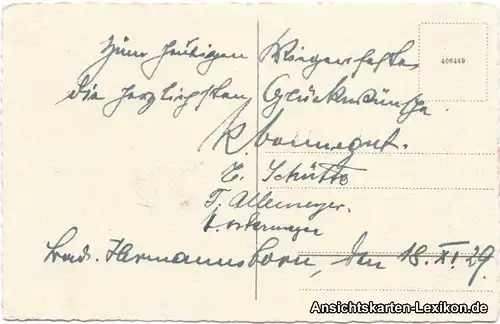 Zum heutigen Wiegenfeste
408449
die herzlichsten Glückwünsche.
K Vonnegut.
E. Schütte
T. Allemeyer.
Bad. Hermannsborn, den 18. XI. 29.
Ansichtskarten-Lexikon.de